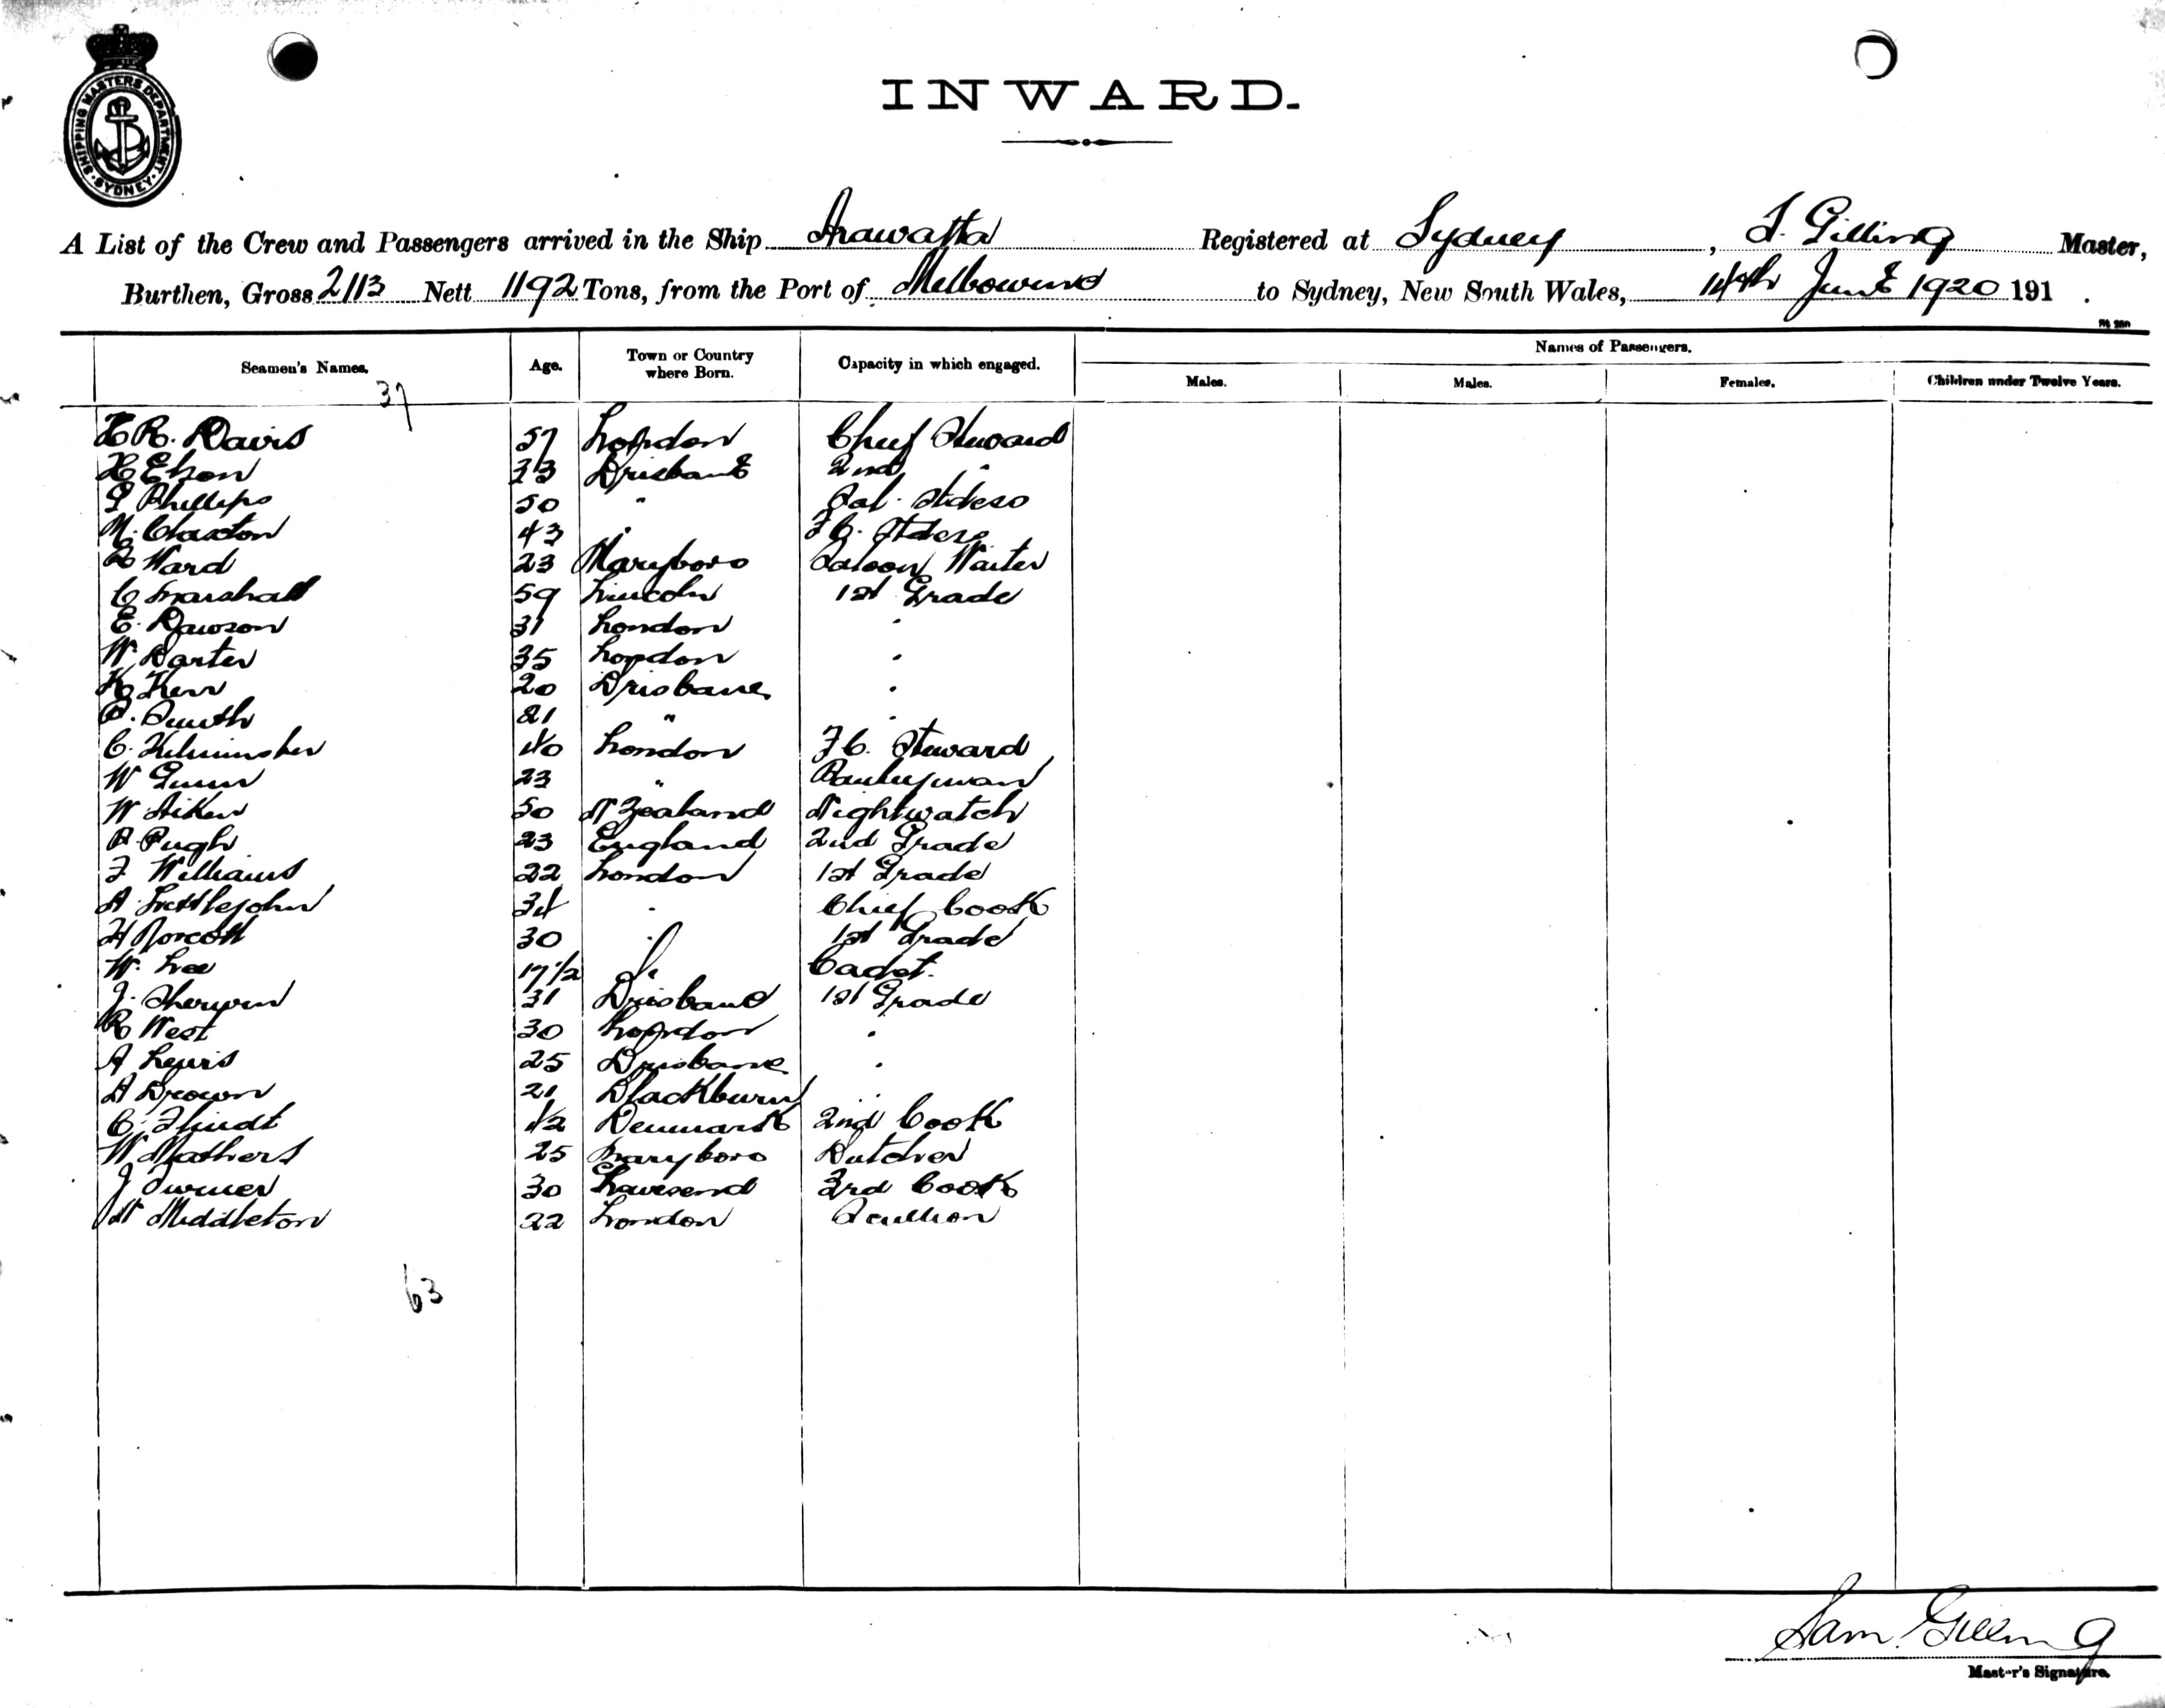 SHIPPING MASTERS DEPARTMENT · SYDNEY ·
INWARD.
A List of the Crew and Passengers arrived in the Ship Arawatta Registered at Sydney, S. Gilling Master,
Burthen, Gross 2113 Nett 1192 Tons, from the Port of Melbourne to Sydney, New South Wales, 14th June 1920 191 .
Names of Passengers.
Seamen's Names. Age. Town or Country where Born. Capacity in which engaged. Males. Males. Females. Children under Twelve Years.
37
H R. Davis 57 London Chief Steward
H Elson 33 Brisbane 2nd "
Phillips 50 " Sal. Stdess
M. Claxton 43 " F C. Stdess
Ward 23 Maryboro Saloon Waiter
C Marshall 59 Lincoln 1st Grade
E. Dawson 31 London "
W. Barter 35 London "
K Kerr 20 Brisbane "
P. Smith 21 " "
C. Kilminster 40 London F C. Steward
W Gunn 23 " Pantryman
W Aiken 50 N Zealand Nightwatch
Pugh 23 England 2nd Grade
F Williams 22 London 1st Grade
A Littlejohn 34 " Chief Cook
H Norcott 30 " 1st Grade
W. Lee 17 1/2 " Cadet.
J. Sherwin 31 Brisbane 1st Grade
R West 30 London "
A Lewis 25 Brisbane "
A Brown 21 Blackburn "
C. Flindt 42 Denmark 2nd Cook
W Mathers 25 Maryboro Butcher
J Turner 30 3rd Cook
W Middleton 22 London Scullion
63
Sam. Gilling
Master's Signature.